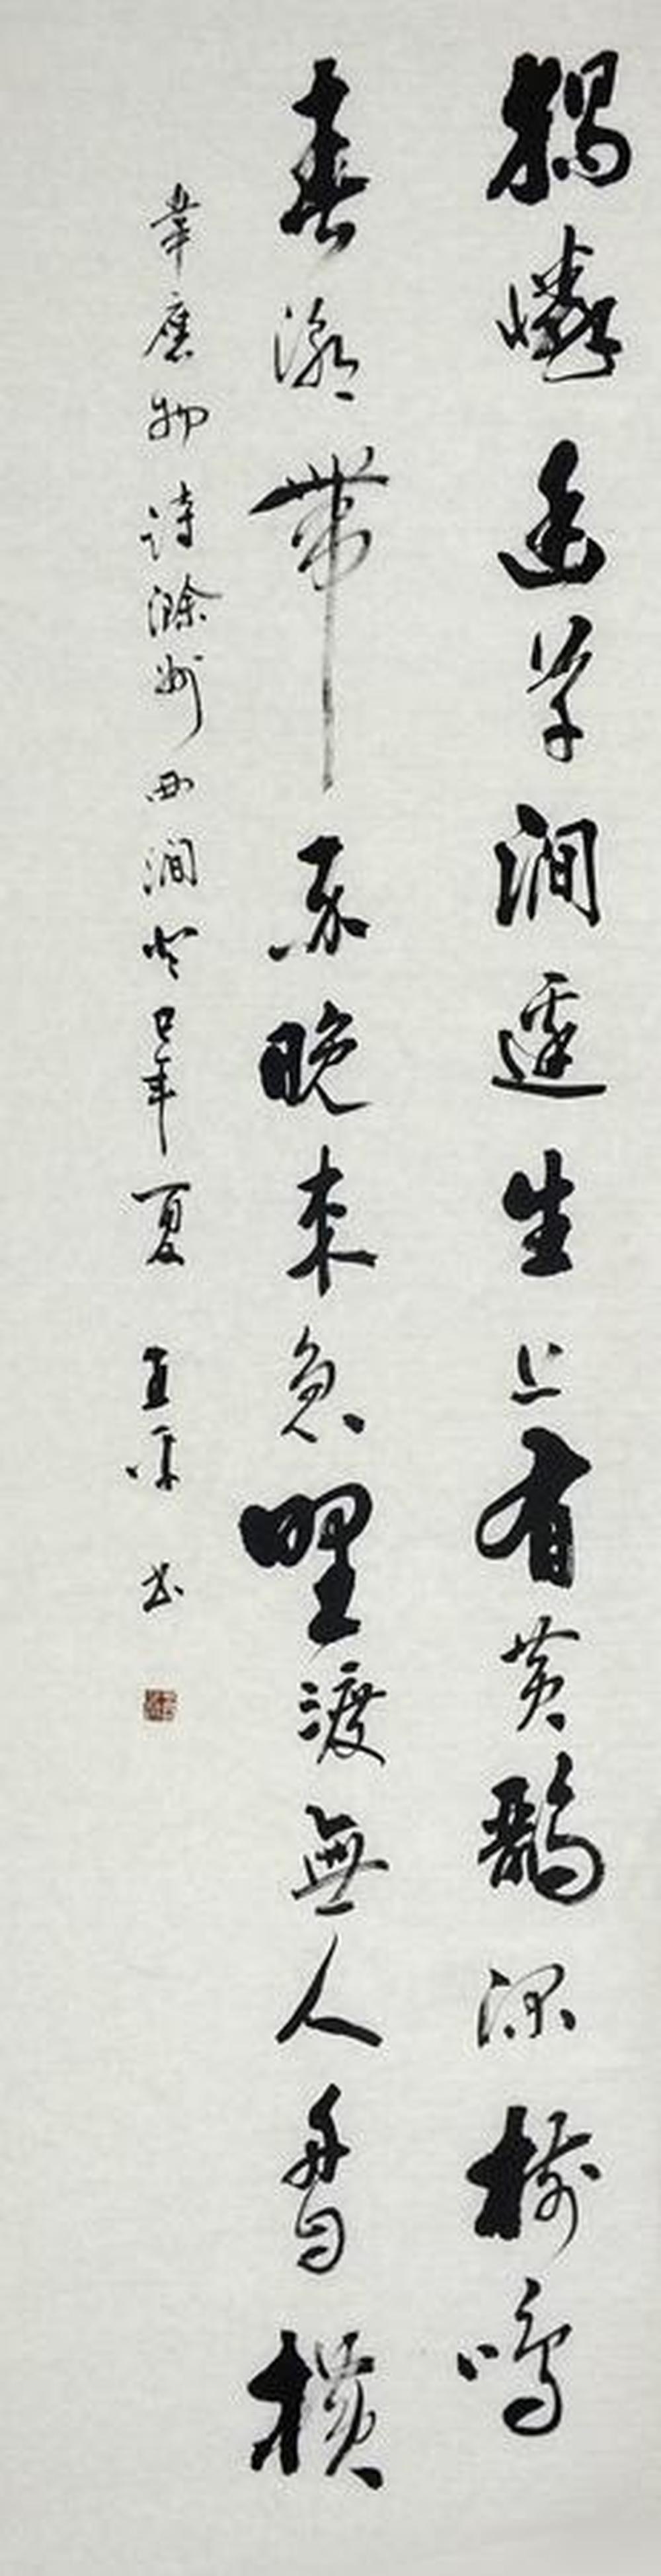 獨憐幽草澗邊生上有黃鸝深樹鳴
春潮帶雨晚來急野渡無人舟自橫
韋應物詩滁州西澗癸巳年夏 書